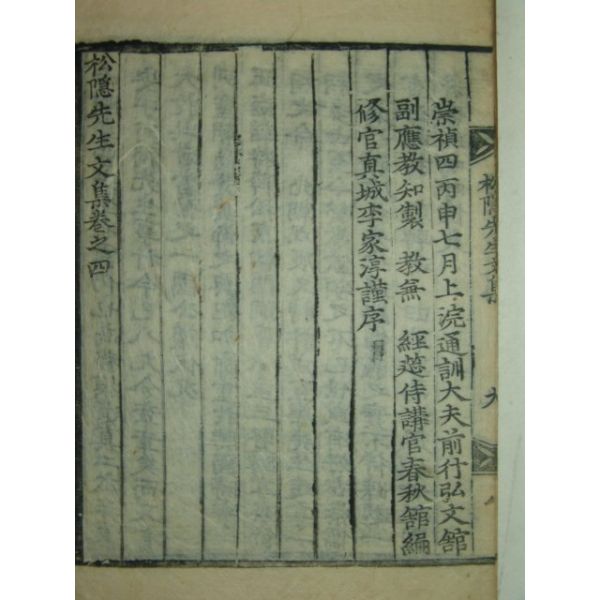 崇禎四丙申七月上浣通訓大夫前行弘文舘
副應教知製　教無　經筵侍講官春秋舘編
修官真城李家淳謹序
松隱先生文集卷之四
松隱先生文集
九